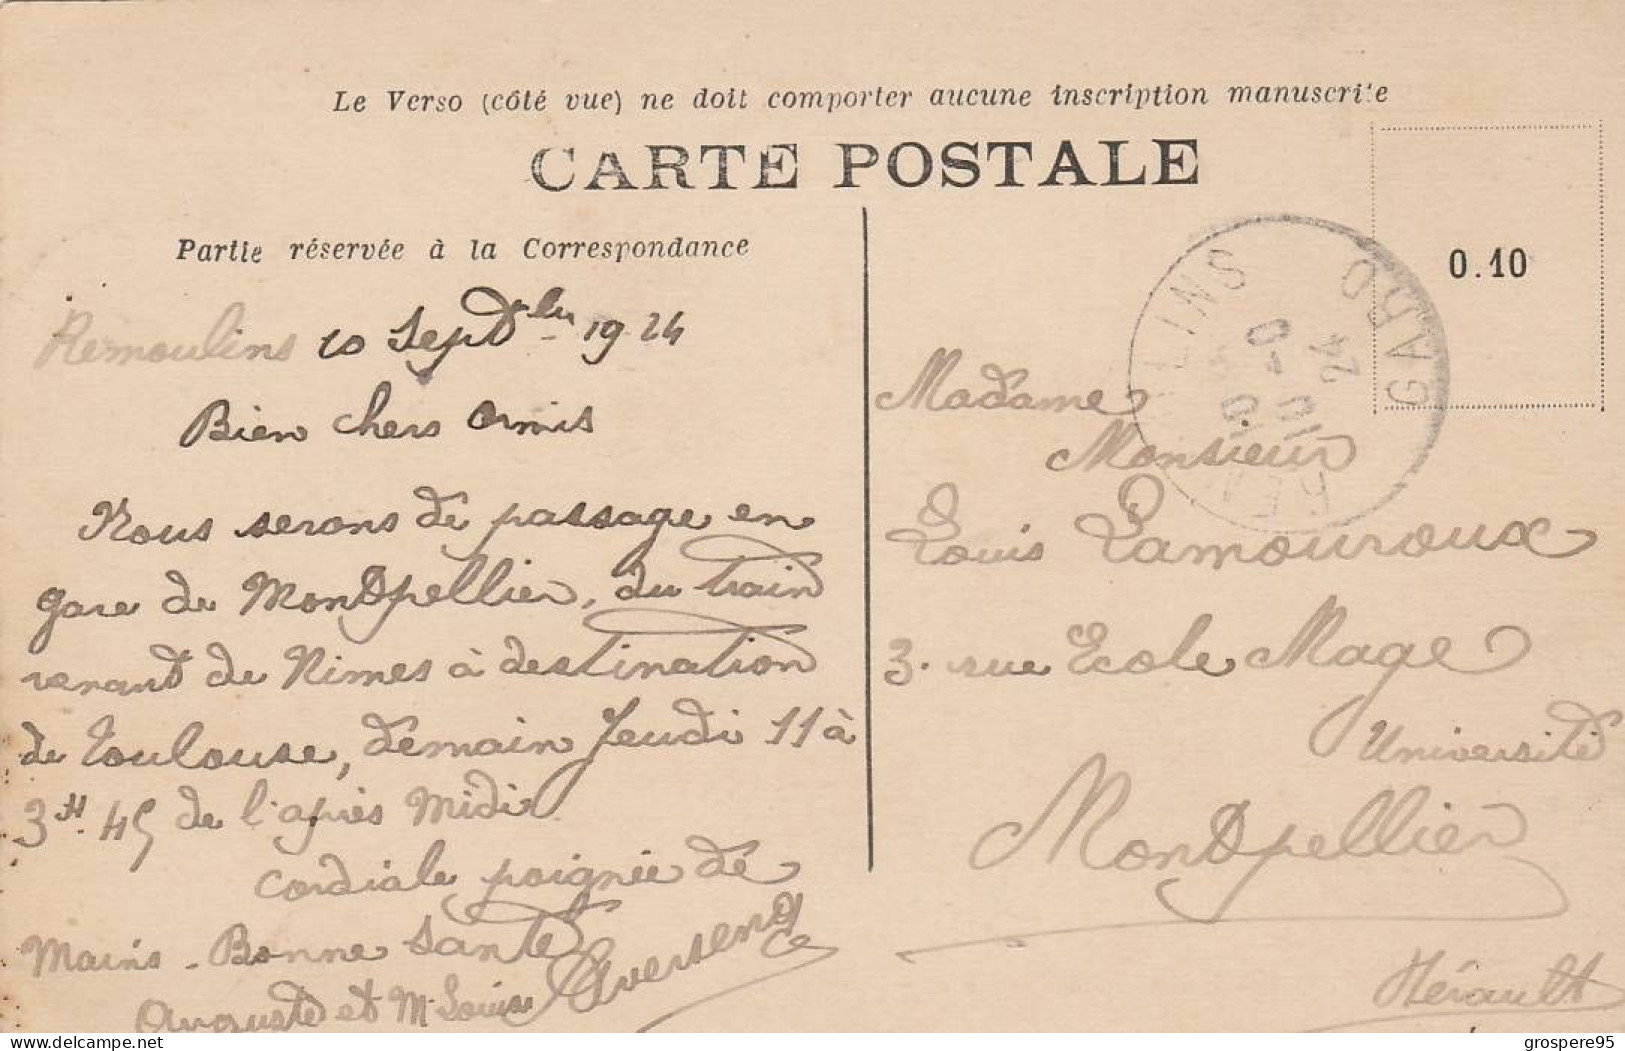 Le Verso (côté vue) ne doit comporter aucune inscription manuscrite
CARTE POSTALE
Partie réservée à la Correspondance
0.10
Remoulins 10 Septbre 1924
Bien chers amis
Nous serons de passage en
gare de Montpellier, du train
venant de Nimes à destination
de Toulouse, demain Jeudi 11 à
3H.45 de l'après midi
Cordiale poignée de
Mains - Bonne Santé
Auguste et M. Louise
Madame
Monsieur
Louis Lamouroux
3. rue Ecole Mage
Université
Montpellier
Hérault
LINS GARD
10 - 9
24
delcampe.net
grospere95